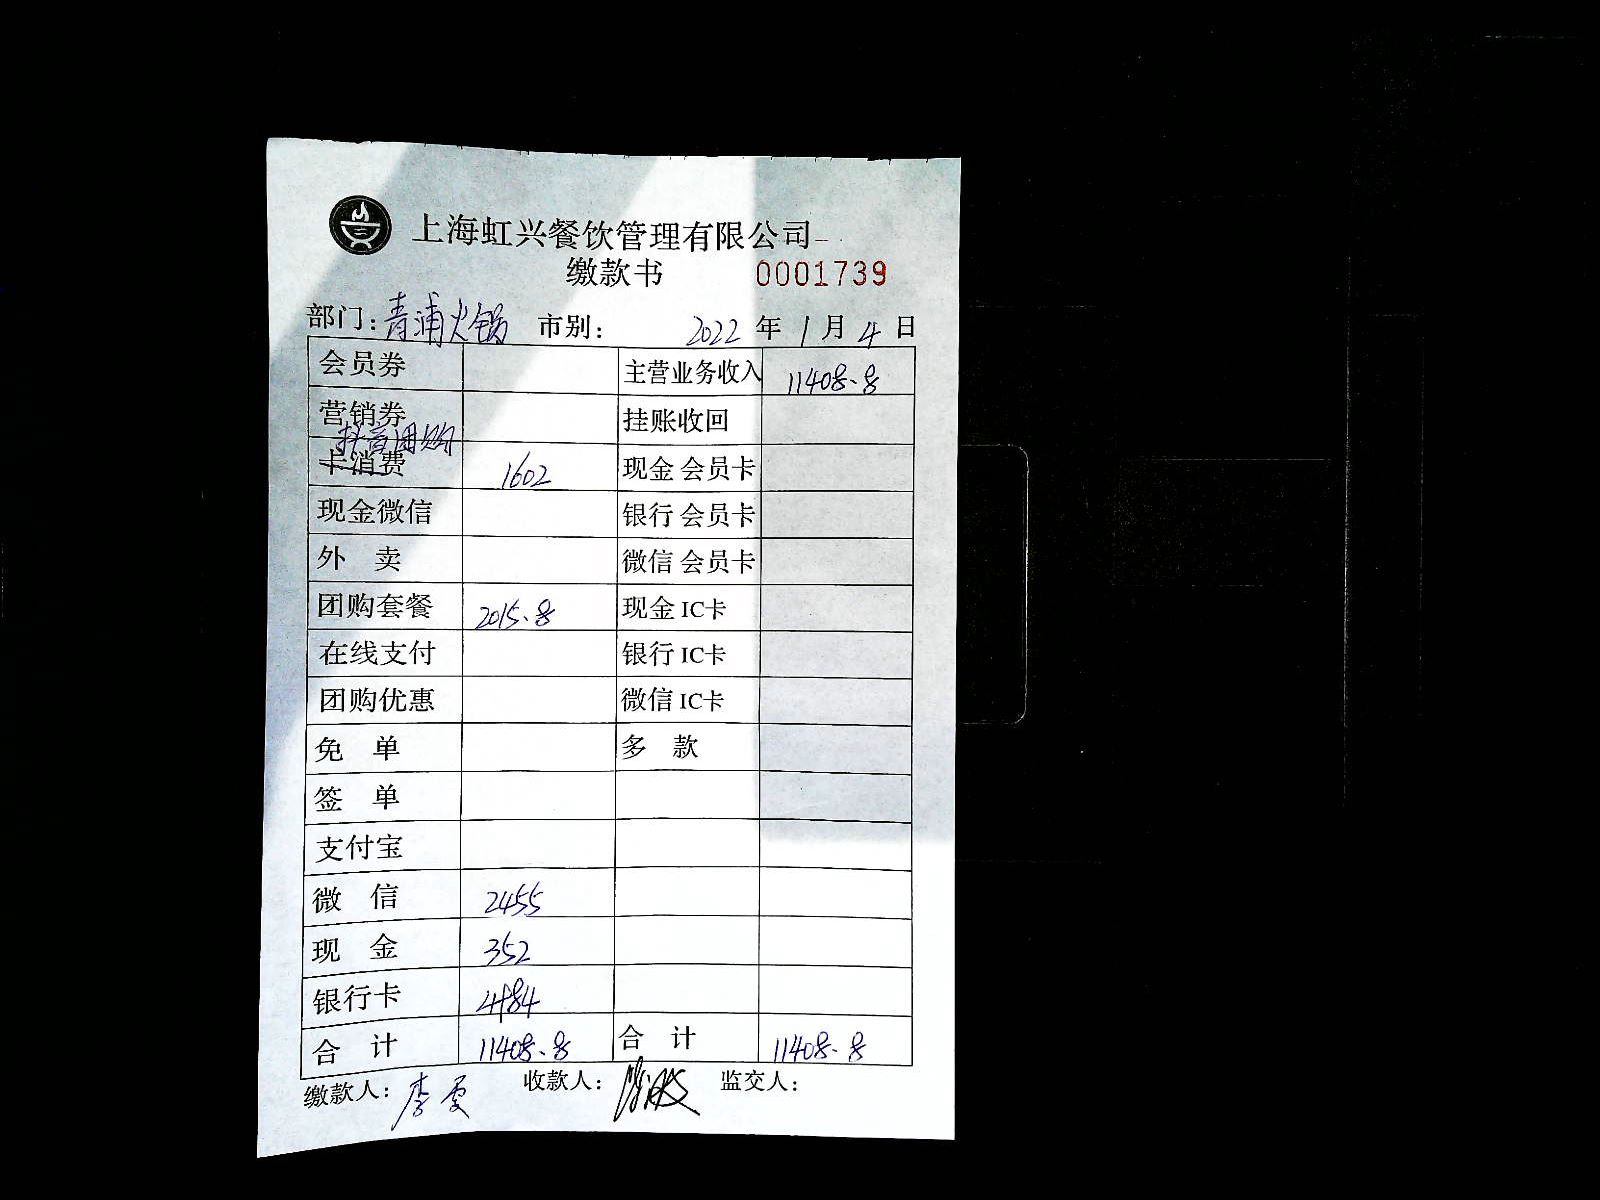 上海虹兴餐饮管理有限公司
缴款书 0001739
部门:青浦火锅 市别: 2022 年 1 月 4 日
会员券 主营业务收入 11408.8
营销券 挂账收回
抖音团购
卡消费 1602 现金 会员卡
现金微信 银行 会员卡
外 卖 微信 会员卡
团购套餐 2015.8 现金 IC卡
在线支付 银行 IC卡
团购优惠 微信 IC卡
免 单 多 款
签 单
支付宝
微 信 2455
现 金 352
银行卡 4984
合 计 11408.8 合 计 11408.8
缴款人: 李 收款人: 监交人: